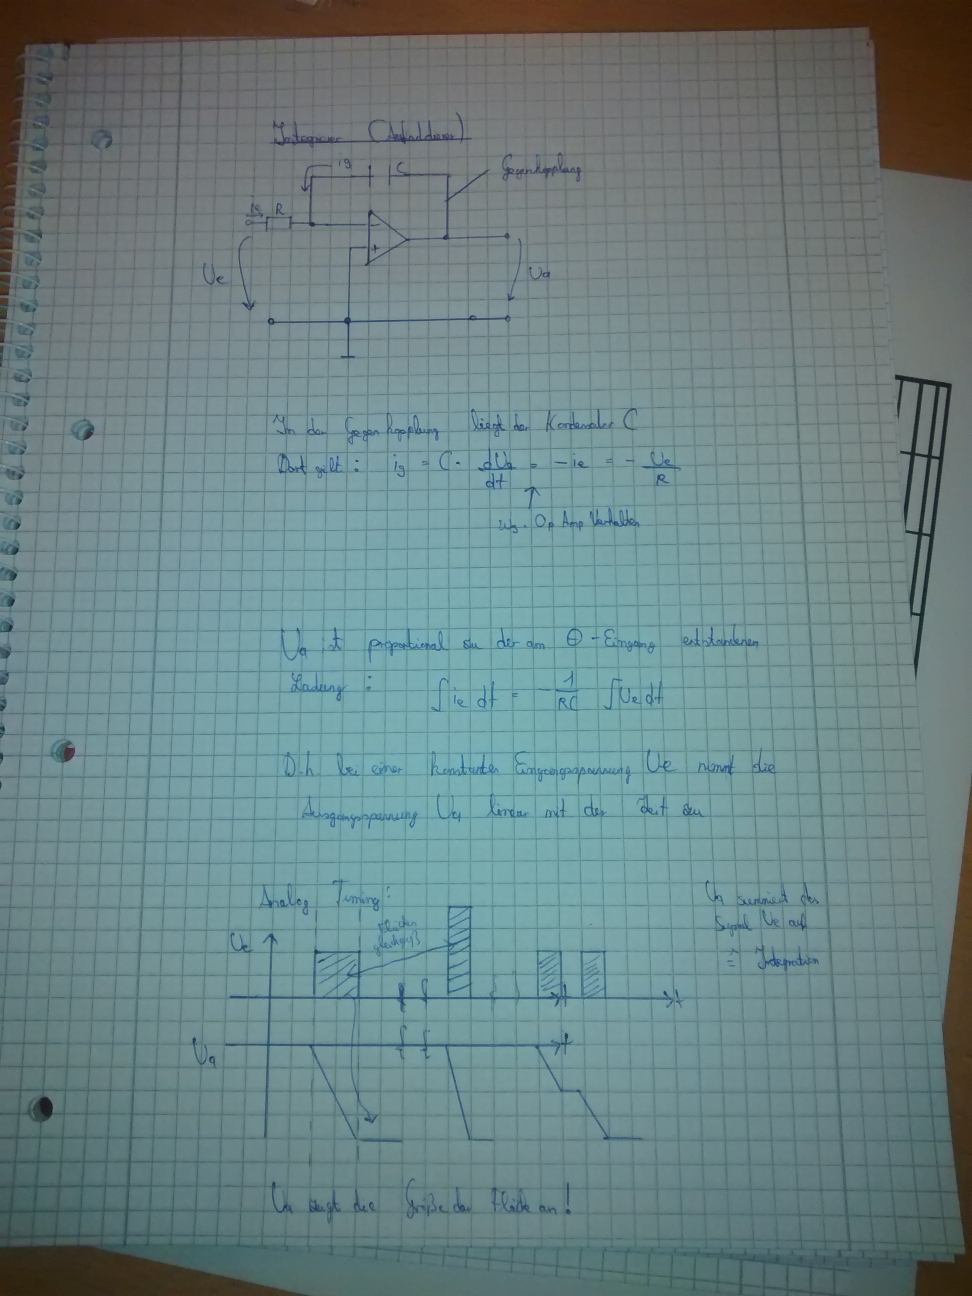 Integrierer (Aufaddierer)
ig
C
Gegenkopplung
ie R
-
+
Ue
Ua
In der Gegenkopplung liegt der Kondensator C
Dort gilt: ig = C · dUa/dt = -ie = - Ue/R
wg. Op Amp Verhalten
Ua ist proportional zu der am ⊖-Eingang entstandenen
Ladung: ∫ie dt = - 1/RC ∫Ue dt
D.h bei einer konstanten Eingangsspannung Ue nimmt die
Ausgangsspannung Ua linear mit der Zeit zu
Analog Timing:
Flächen
gleichgroß
Ua summiert das
Signal Ue auf
≙ Integration
Ue
t
t
Ua
t
Ua zeigt die Größe der Fläche an!